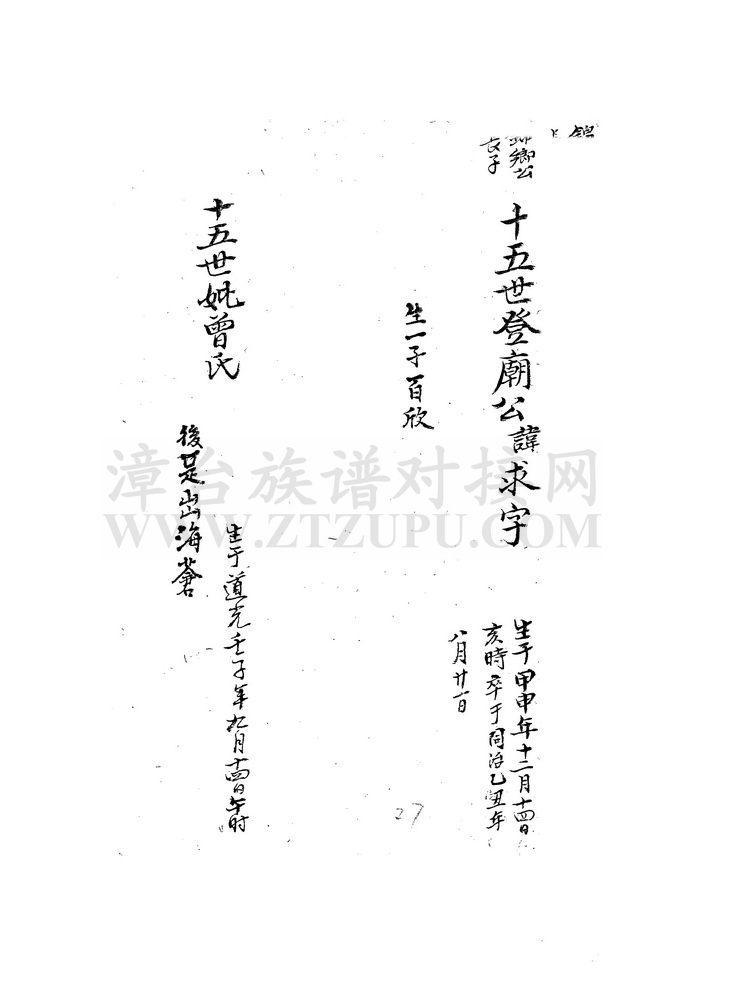 鄉公
長子
十五世登廟公諱求字
生于甲申年十二月十四日
亥時卒于同治乙丑年
八月廿一日
生一子百欣
十五世妣曾氏
生于道光壬子年九月十四日午时
後是山海蒼
27
漳台族谱对接网
WWW.ZTZUPU.COM